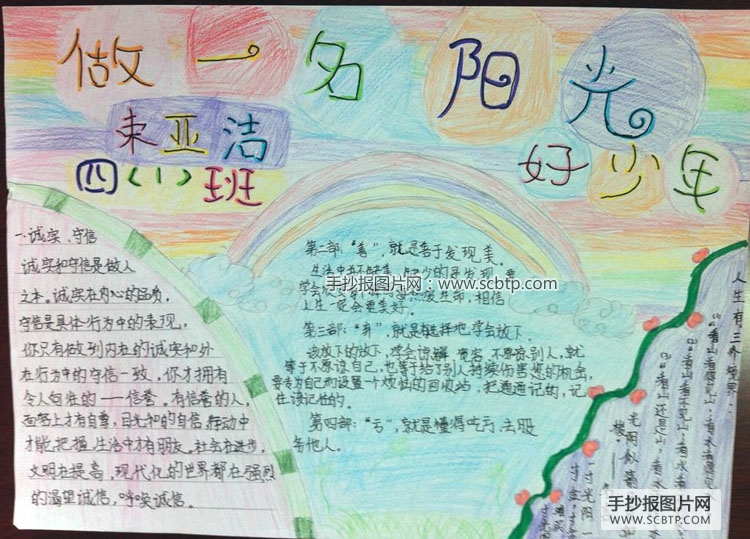 做一名阳光
好少年
束亚洁
四(1)班
一.诚实、守信
诚实和守信是做人
之本。诚实在内心的品质,
守信是具体行为中的表现,
你只有做到内在的诚实和外
在行为中的守信一致,你才拥有
令人向往的——信誉。有信誉的人,
面容上才有自尊,目光和的自信,行动中
才能把握,生活中才有朋友。社会在进步,
文明在提高,现代化的世界都在强烈
的渴望诚信,呼唤诚信。
第二部:"看",就是善于发现美。
生活中并不缺美,缺少的是发现。要
学会
相信
人生一定会更美好。
第三部:"弃",就是选择地学会放下
该放下的放下,学会谅解、宽容,不原谅别人,就
等于不原谅自己,也等于给了别人持续伤害您的机会,
要专为自己的设置一个烦恼的回收站,把遗通记的,记
住该记住的。
第四部:"亏",就是懂得吃亏,去服
务他人。
人生有三种境界:
看山
看山还是山,看水
光阴似箭
一寸光阴一
寸金
手抄报图片网:www.scbtp.com
手抄报图片网
WWW.SCBTP.COM